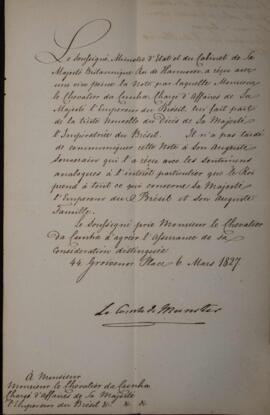 Le Soussigné, Ministre d'Etat et du Cabinet de Sa
Majesté Britannique Roi de Hannovre, a reçu avec
une vive peine la Note par laquelle Monsieur
le Chevalier da Cunha, Chargé d'Affaires de Sa
Majesté l'Empereur du Brésil, lui fait part
de la triste nouvelle du Décès de Sa Majesté
l'Impératrice du Brésil. Il n'a pas tardé
de communiquer cette Note à Son Auguste
Souverain qui l'a reçue avec les sentimens
analogues à l'intérêt particulier que le Roi
prend à tout ce qui concerne Sa Majesté
l'Empereur du Brésil et Son Auguste
Famille.
Le Soussigné prie Monsieur le Chevalier
da Cunha d'agréer l'Assurance de Sa
Considération distinguée
44. Grosvenor Place 6 Mars 1827
Le Comte de Munster
A Monsieur
Monsieur le Chevalier da Cunha
Chargé d'Affaires de Sa Majesté
l'Empereur du Brésil &c &c &c